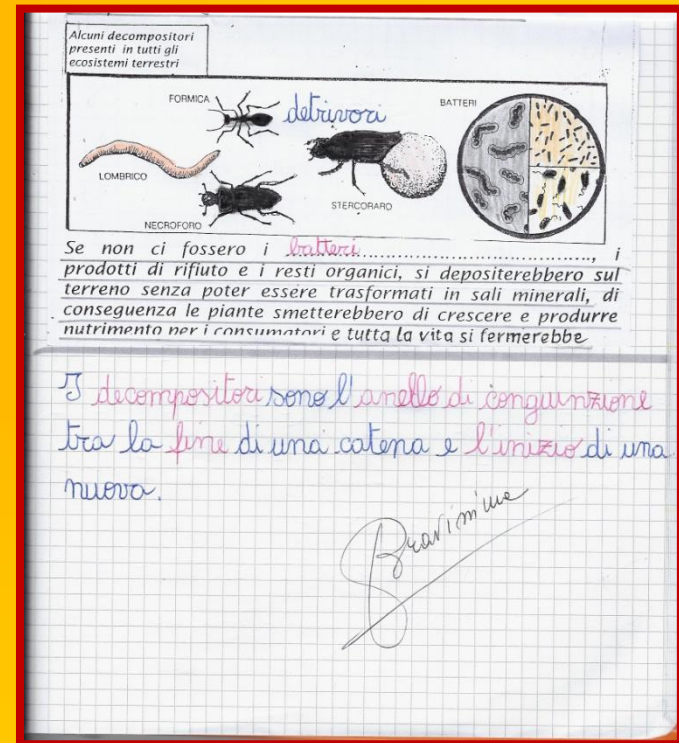 Alcuni decompositori
presenti in tutti gli
ecosistemi terrestri
FORMICA
detrivori
BATTERI
LOMBRICO
STERCORARO
NECROFORO
Se non ci fossero i batteri......................................., i
prodotti di rifiuto e i resti organici, si depositerebbero sul
terreno senza poter essere trasformati in sali minerali, di
conseguenza le piante smetterebbero di crescere e produrre
nutrimento per i consumatori e tutta la vita si fermerebbe
I decompositori sono l'anello di conguinzione
tra la fine di una catena e l'inizio di una
nuova.
Bravissima